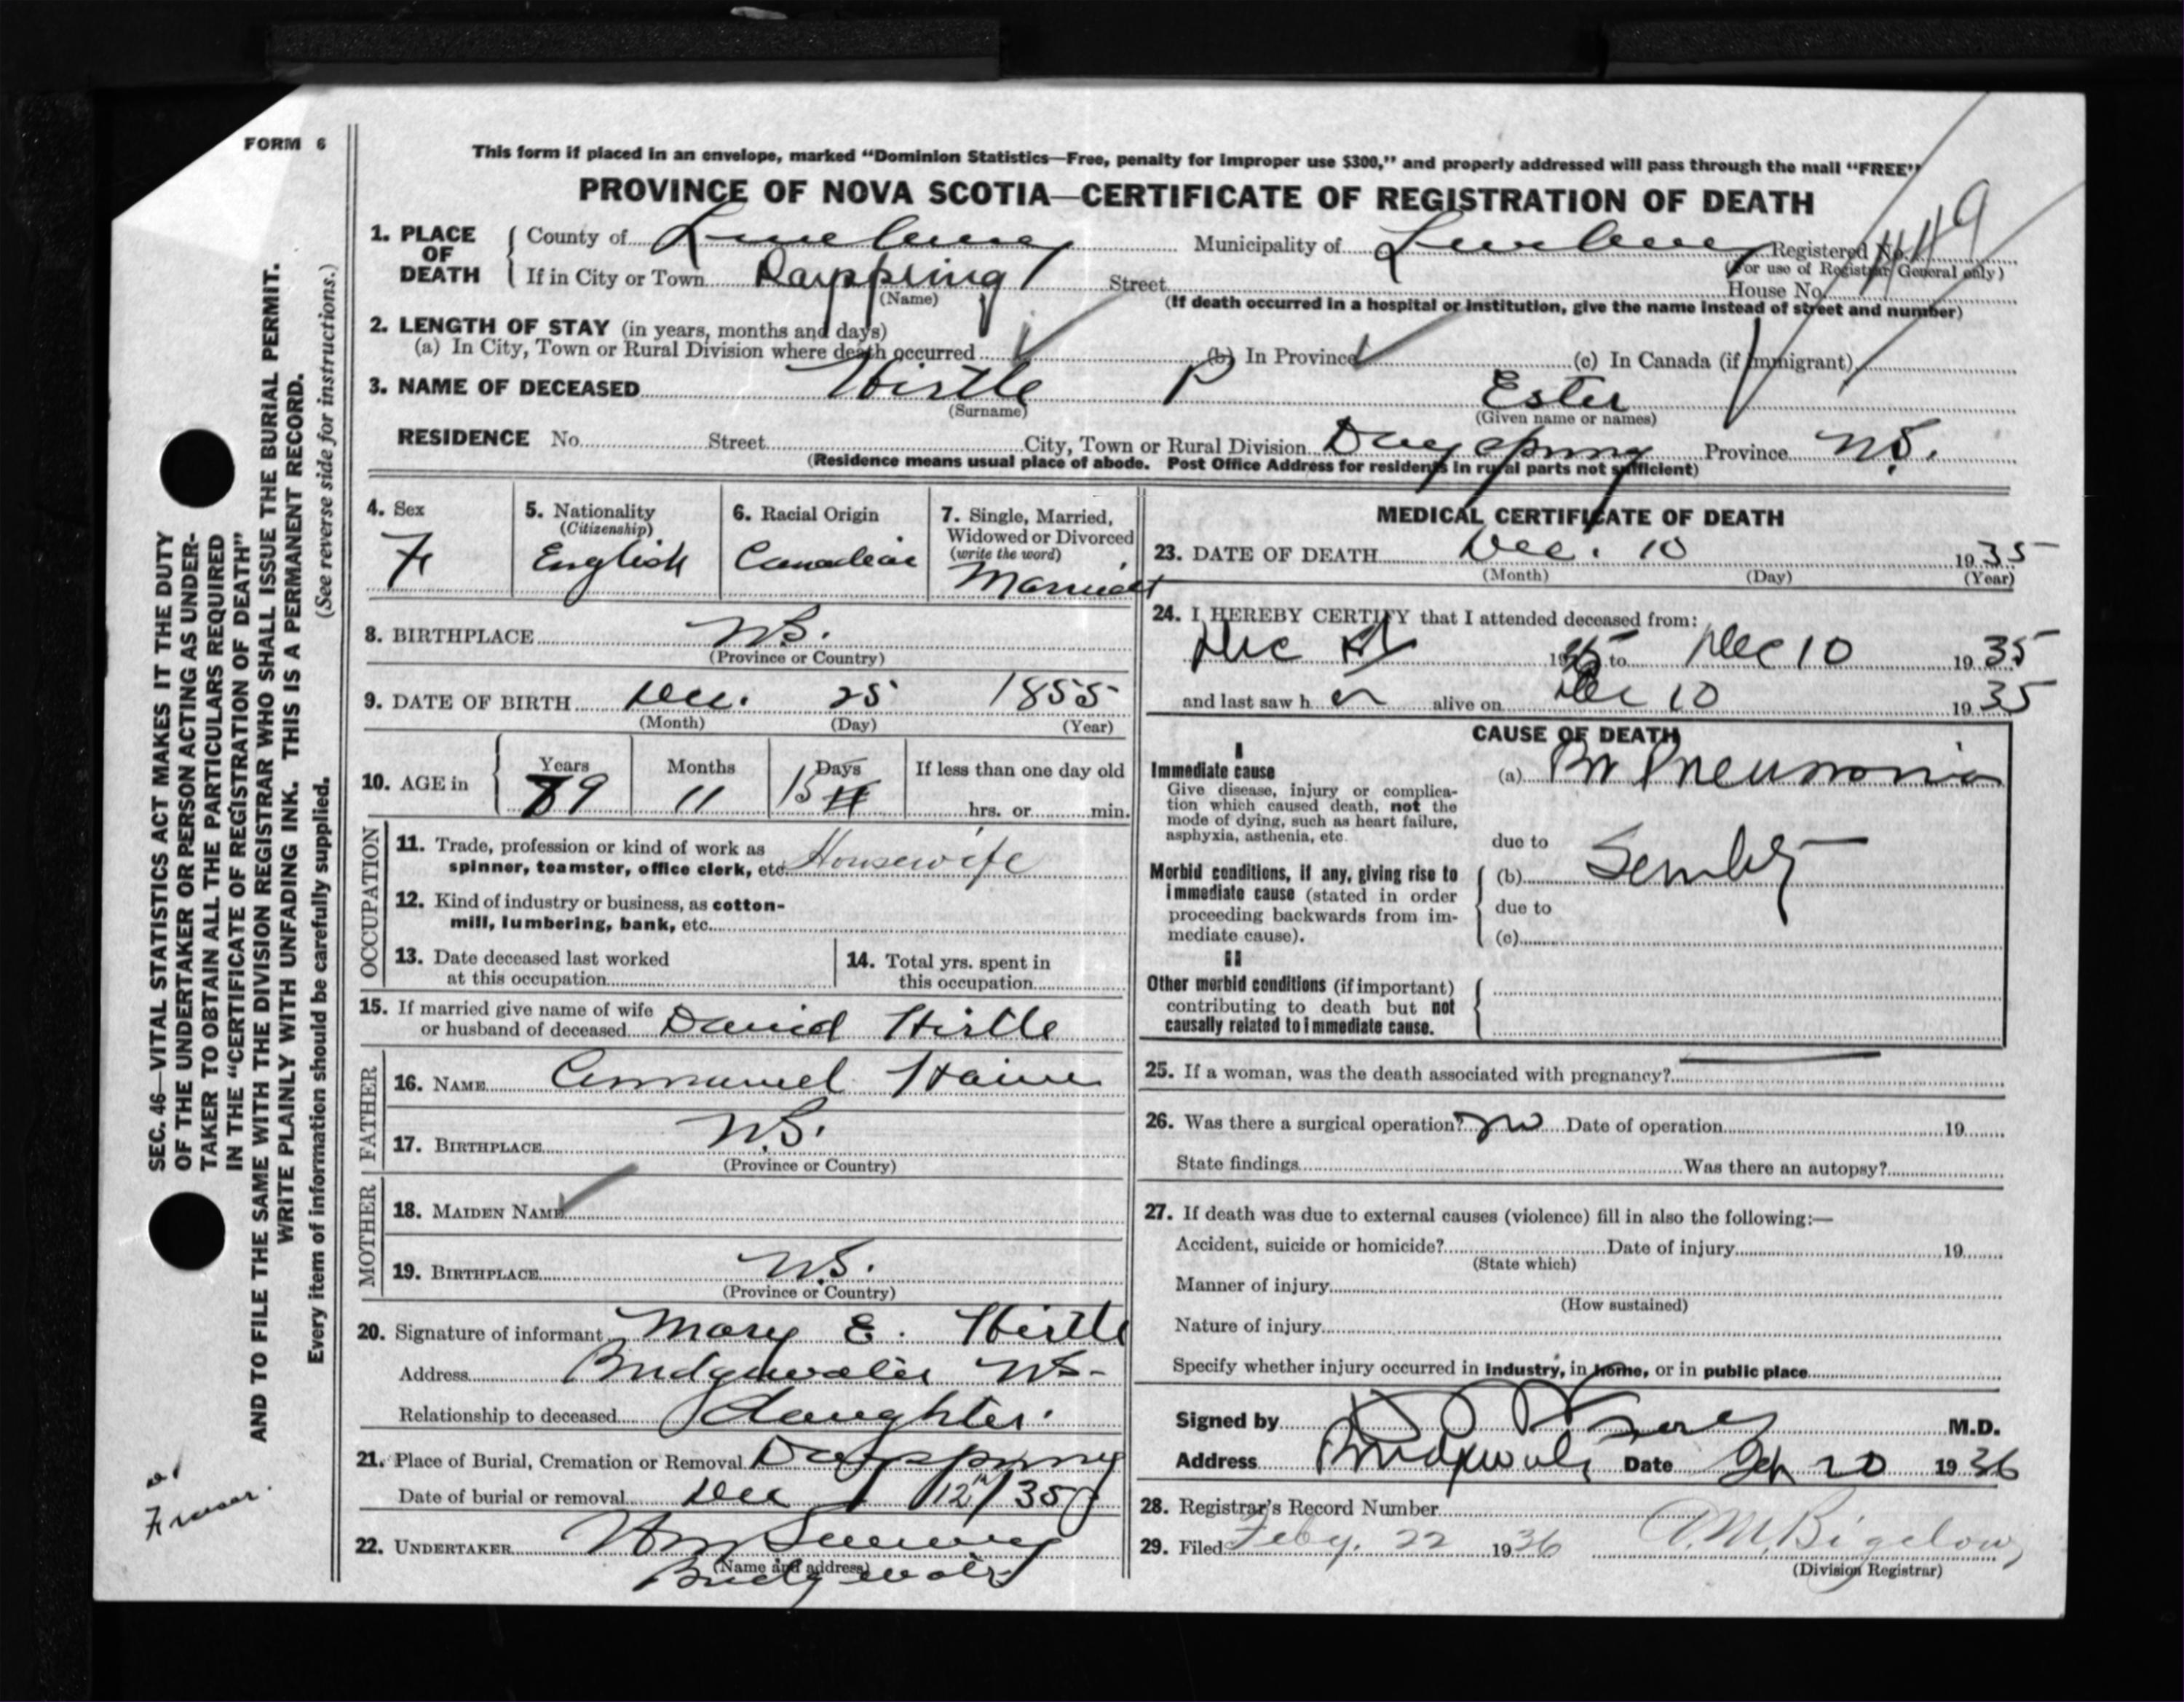 FORM 6
This form if placed in an envelope, marked “Dominion Statistics—Free, penalty for improper use $300,” and properly addressed will pass through the mail “FREE”
PROVINCE OF NOVA SCOTIA—CERTIFICATE OF REGISTRATION OF DEATH
1. PLACE OF DEATH
County of Lunenburg Municipality of Lunenburg Registered No. 449
(For use of Registrar General only)
If in City or Town Dayspring Street House No.
(Name) (If death occurred in a hospital or institution, give the name instead of street and number)
2. LENGTH OF STAY (in years, months and days)
(a) In City, Town or Rural Division where death occurred (b) In Province (c) In Canada (if immigrant)
3. NAME OF DECEASED Hirtle P Ester
(Surname) (Given name or names)
RESIDENCE No. Street City, Town or Rural Division Dayspring Province N.S.
(Residence means usual place of abode. Post Office Address for residents in rural parts not sufficient)
4. Sex
F
5. Nationality
(Citizenship)
English
6. Racial Origin
Canadian
7. Single, Married,
Widowed or Divorced
(write the word)
Married
8. BIRTHPLACE N.S.
(Province or Country)
9. DATE OF BIRTH Dec. 25 1855
(Month) (Day) (Year)
10. AGE in Years Months Days If less than one day old
79 11 15 hrs. or min.
OCCUPATION
11. Trade, profession or kind of work as
spinner, teamster, office clerk, etc. Housewife
12. Kind of industry or business, as cotton-
mill, lumbering, bank, etc.
13. Date deceased last worked
at this occupation
14. Total yrs. spent in
this occupation
15. If married give name of wife
or husband of deceased David Hirtle
FATHER
16. NAME
17. BIRTHPLACE N.S.
(Province or Country)
MOTHER
18. MAIDEN NAME
19. BIRTHPLACE N.S.
(Province or Country)
20. Signature of informant Mary E. Hirtle
Address Bridgewater N.S.
Relationship to deceased daughter.
21. Place of Burial, Cremation or Removal Dayspring
Date of burial or removal Dec 12th/35
22. UNDERTAKER Wm
(Name and address)
Bridgewater
MEDICAL CERTIFICATE OF DEATH
23. DATE OF DEATH Dec. 10 1935
(Month) (Day) (Year)
24. I HEREBY CERTIFY that I attended deceased from:
Dec 1935 to Dec 10 1935
and last saw her alive on Dec 10 1935
CAUSE OF DEATH
I
Immediate cause
Give disease, injury or complica-
tion which caused death, not the
mode of dying, such as heart failure,
asphyxia, asthenia, etc.
(a) Br Pneumonia
due to
Morbid conditions, if any, giving rise to
immediate cause (stated in order
proceeding backwards from im-
mediate cause).
(b) Senility
due to
(c)
II
Other morbid conditions (if important)
contributing to death but not
causally related to immediate cause.
25. If a woman, was the death associated with pregnancy?
26. Was there a surgical operation? no Date of operation 19
State findings Was there an autopsy?
27. If death was due to external causes (violence) fill in also the following:—
Accident, suicide or homicide? Date of injury 19
(State which)
Manner of injury
(How sustained)
Nature of injury
Specify whether injury occurred in industry, in home, or in public place
Signed by M.D.
Address Bridgewater Date Feb 20 1936
28. Registrar's Record Number
29. Filed Feby. 22 1936 A.M. Bigelow
(Division Registrar)
SEC. 46—VITAL STATISTICS ACT MAKES IT THE DUTY
OF THE UNDERTAKER OR PERSON ACTING AS UNDER-
TAKER TO OBTAIN ALL THE PARTICULARS REQUIRED
IN THE “CERTIFICATE OF REGISTRATION OF DEATH”
AND TO FILE THE SAME WITH THE DIVISION REGISTRAR WHO SHALL ISSUE THE BURIAL PERMIT.
WRITE PLAINLY WITH UNFADING INK. THIS IS A PERMANENT RECORD.
Every item of information should be carefully supplied. (See reverse side for instructions.)